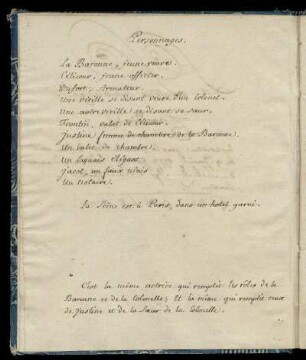 Personnages.
La Baronne, jeune veuve.
Célicour, jeune officier.
Dufort, Armateur.
Une vieille se disant veuve d'un Colonel.
Une autre vieille se disant sa sœur.
Frontin, valet de Célicour.
Justine femme de chambre de la Baronne.
Un valet de chambre.
Un laquais élégant.
Jacot, un faux niais
Un notaire.
La Scène est à Paris, dans un hotel garni.
C'est la même actrice qui remplit les rôles de la
Baronne et de la Colonelle; Et la même qui remplit ceux
de Justine et de la Sœur de la Colonelle.